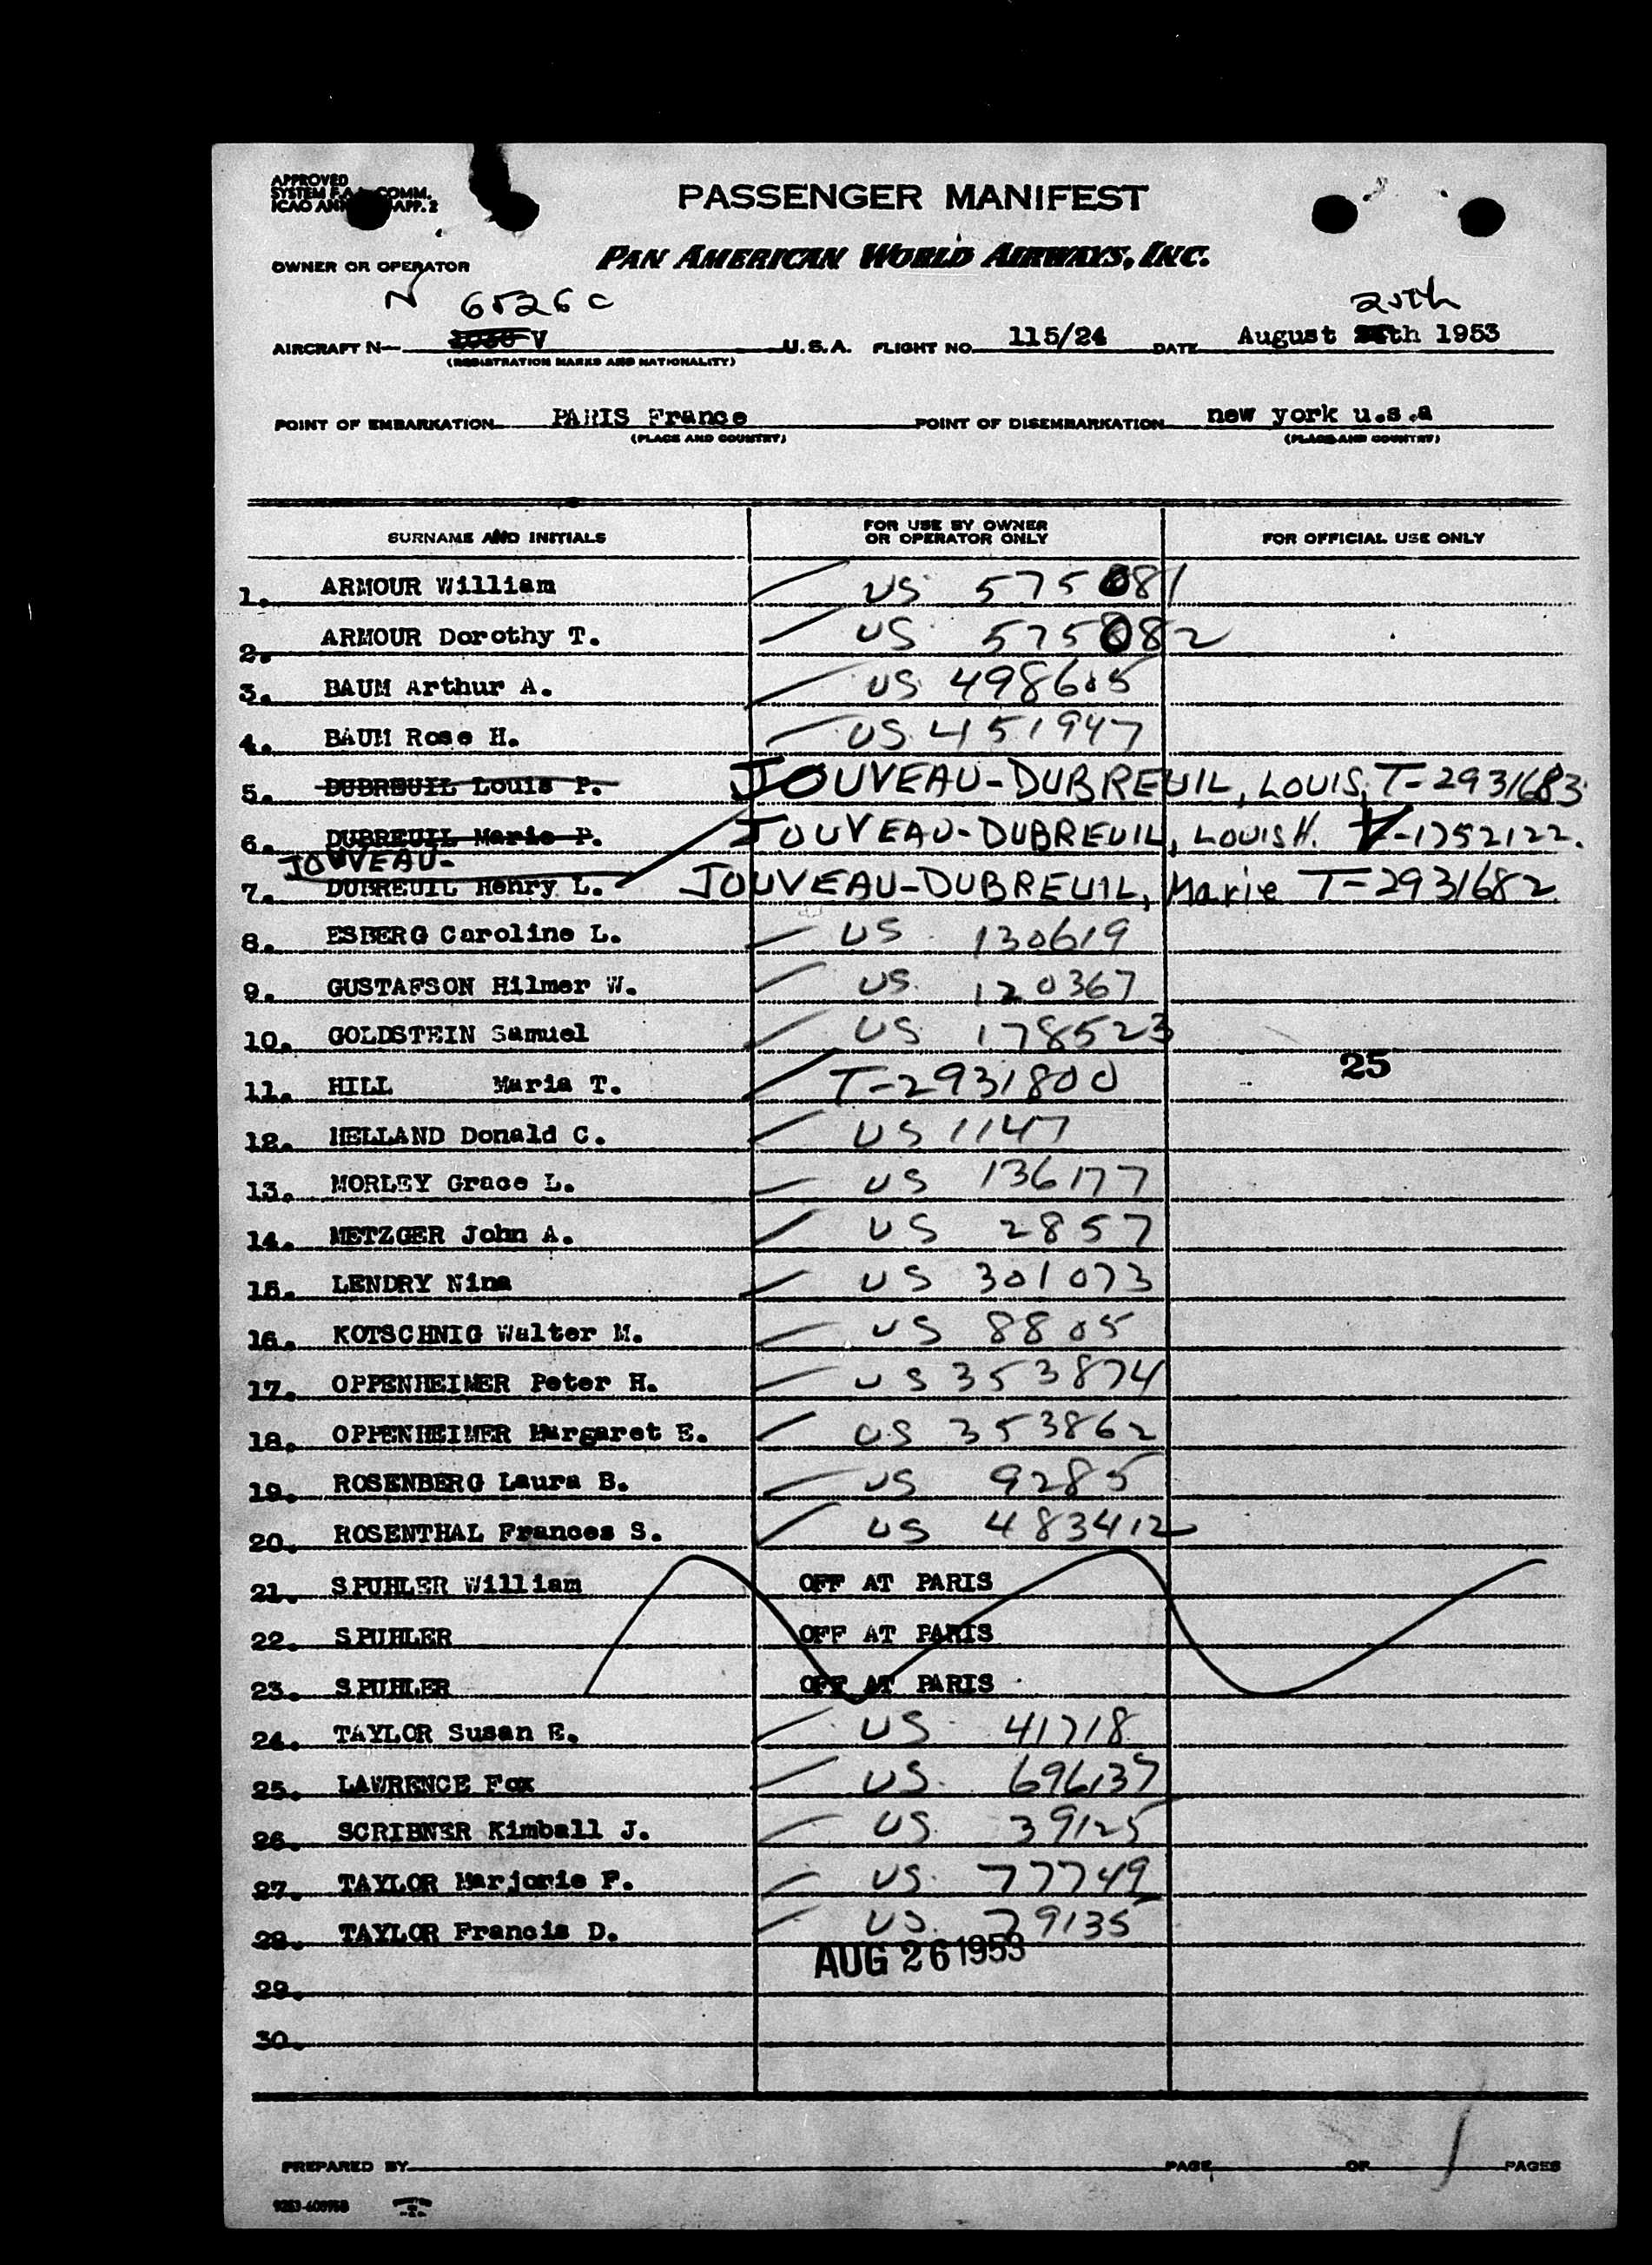 APPROVED
PASSENGER MANIFEST
SYSTEM F.A.L. COMM.
ICAO ANX APP. 2
OWNER OR OPERATOR PAN AMERICAN WORLD AIRWAYS, INC.
N 6526 C 25th
AIRCRAFT N V U.S.A. FLIGHT NO. 115/24 DATE August th 1953
(REGISTRATION MARKS AND NATIONALITY)
POINT OF EMBARKATION PARIS France POINT OF DISEMBARKATION new york u.s.a
(PLACE AND COUNTRY) (PLACE AND COUNTRY)
SURNAME AND INITIALS FOR USE BY OWNER OR OPERATOR ONLY FOR OFFICIAL USE ONLY
1. ARMOUR William US 575081
2. ARMOUR Dorothy T. US 575082
3. BAUM Arthur A. US 498605
4. BAUM Rose H. US 451947
5. DUBREUIL Louis P. JOUVEAU-DUBREUIL, LOUIS, T-2931683
6. DUBREUIL Marie P. JOUVEAU-DUBREUIL, LOUIS H. V-1752122.
JOUVEAU-
7. DUBREUIL Henry L. JOUVEAU-DUBREUIL, Marie T-2931682
8. ESBERG Caroline L. US 130619
9. GUSTAFSON Hilmer W. US 120367
10. GOLDSTEIN Samuel US 178523
25
11. HILL Maria T. T-2931800
12. HELLAND Donald C. US 1147
13. MORLEY Grace L. US 136177
14. METZGER John A. US 2857
15. LENDRY Nina US 301073
16. KOTSCHNIG Walter M. US 8805
17. OPPENHEIMER Peter H. US 353874
18. OPPENHEIMER Margaret E. US 353862
19. ROSENBERG Laura B. US 9285
20. ROSENTHAL Frances S. US 483412
21. SPUHLER William OFF AT PARIS
22. SPUHLER OFF AT PARIS
23. SPUHLER OFF AT PARIS
24. TAYLOR Susan E. US 41718
25. LAWRENCE Fox US 696137
26. SCRIBNER Kimball J. US 39125
27. TAYLOR Marjorie F. US 77749
28. TAYLOR Francis D. US 39135
AUG 26 1953
29.
30.
PREPARED BY PAGE OF 1 PAGES